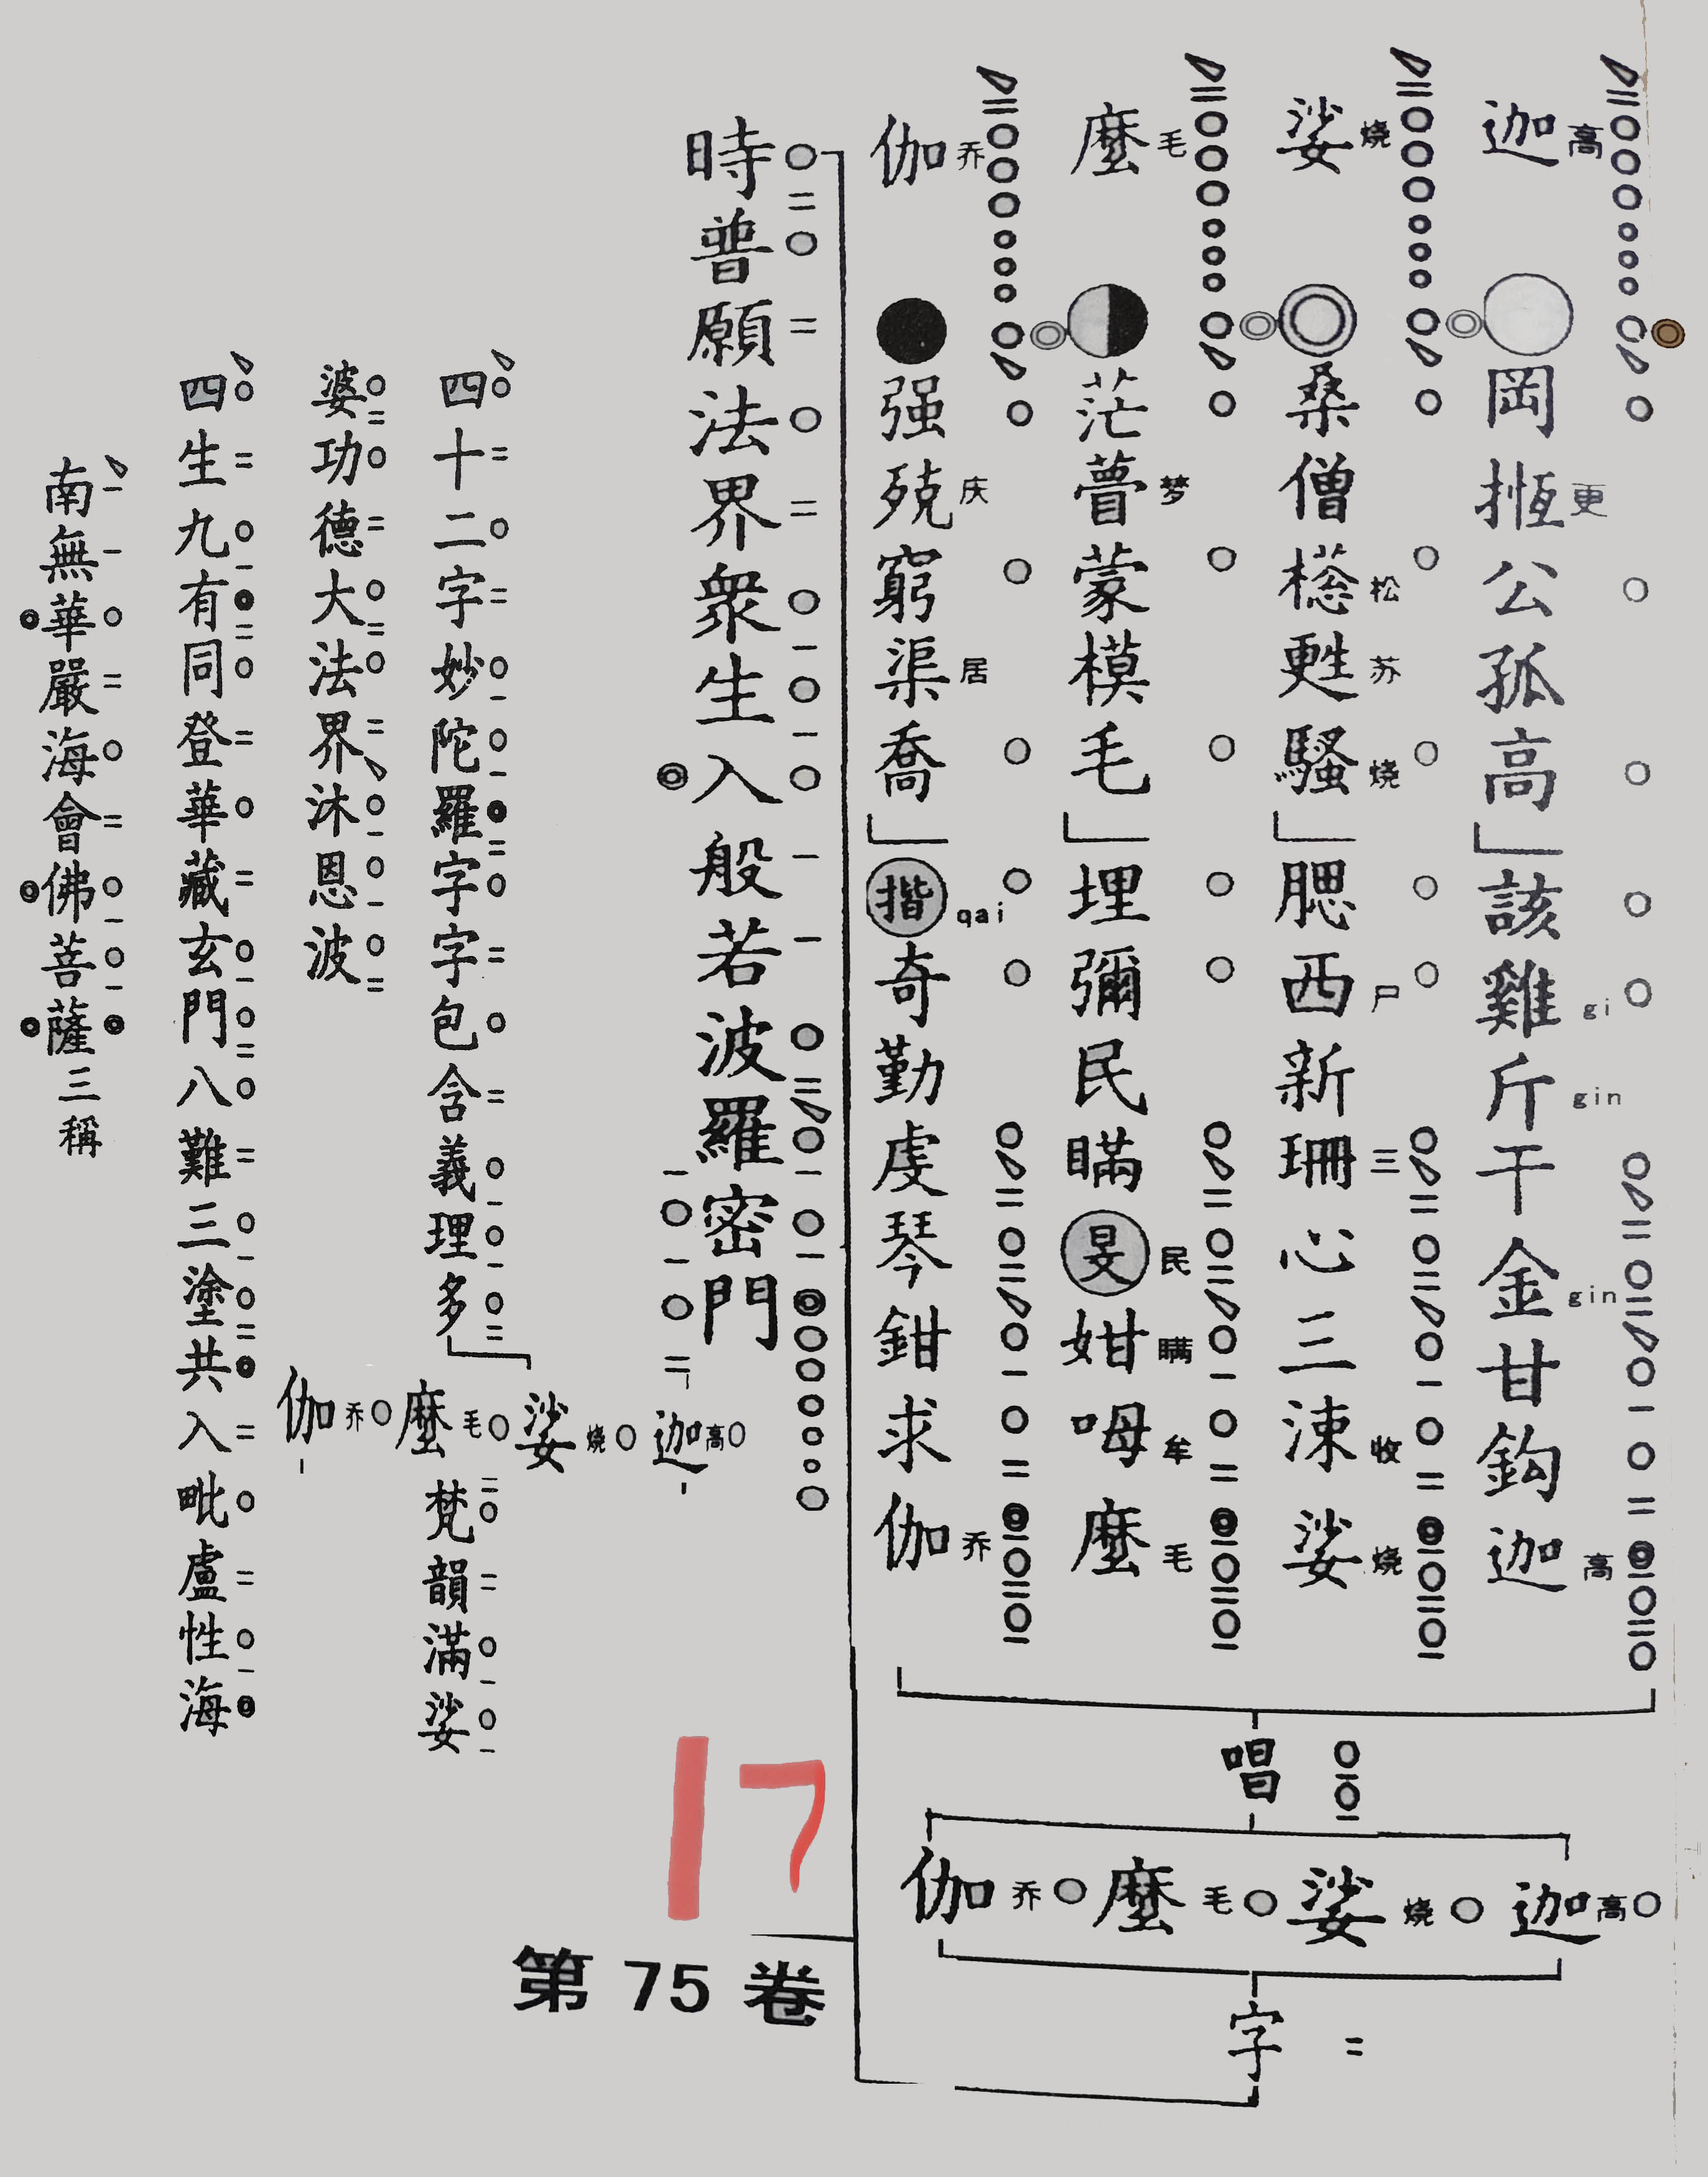 迦高 岡搄更公孤高 該雞gi斤gin干金gin甘鈎迦高
娑烧 桑僧樬松甦苏騷烧 腮西尸新珊三心三涑收娑烧
麼毛 茫瞢梦蒙模毛 埋彌民瞞旻民姏瞒呣牟麼毛
伽乔 强殑庆窮渠居喬 揩qai奇勤虔琴鉗求伽乔
唱
迦高 娑烧 麼毛 伽乔
字
時普願法界衆生入般若波羅密門
四十二字妙陀羅字字包含義理多
迦高 娑烧 麼毛 伽乔
梵韻滿娑
婆功德大法界沐恩波
四生九有同登華藏玄門八難三塗共入毗盧性海
南無華嚴海會佛菩薩三稱
17
第75卷